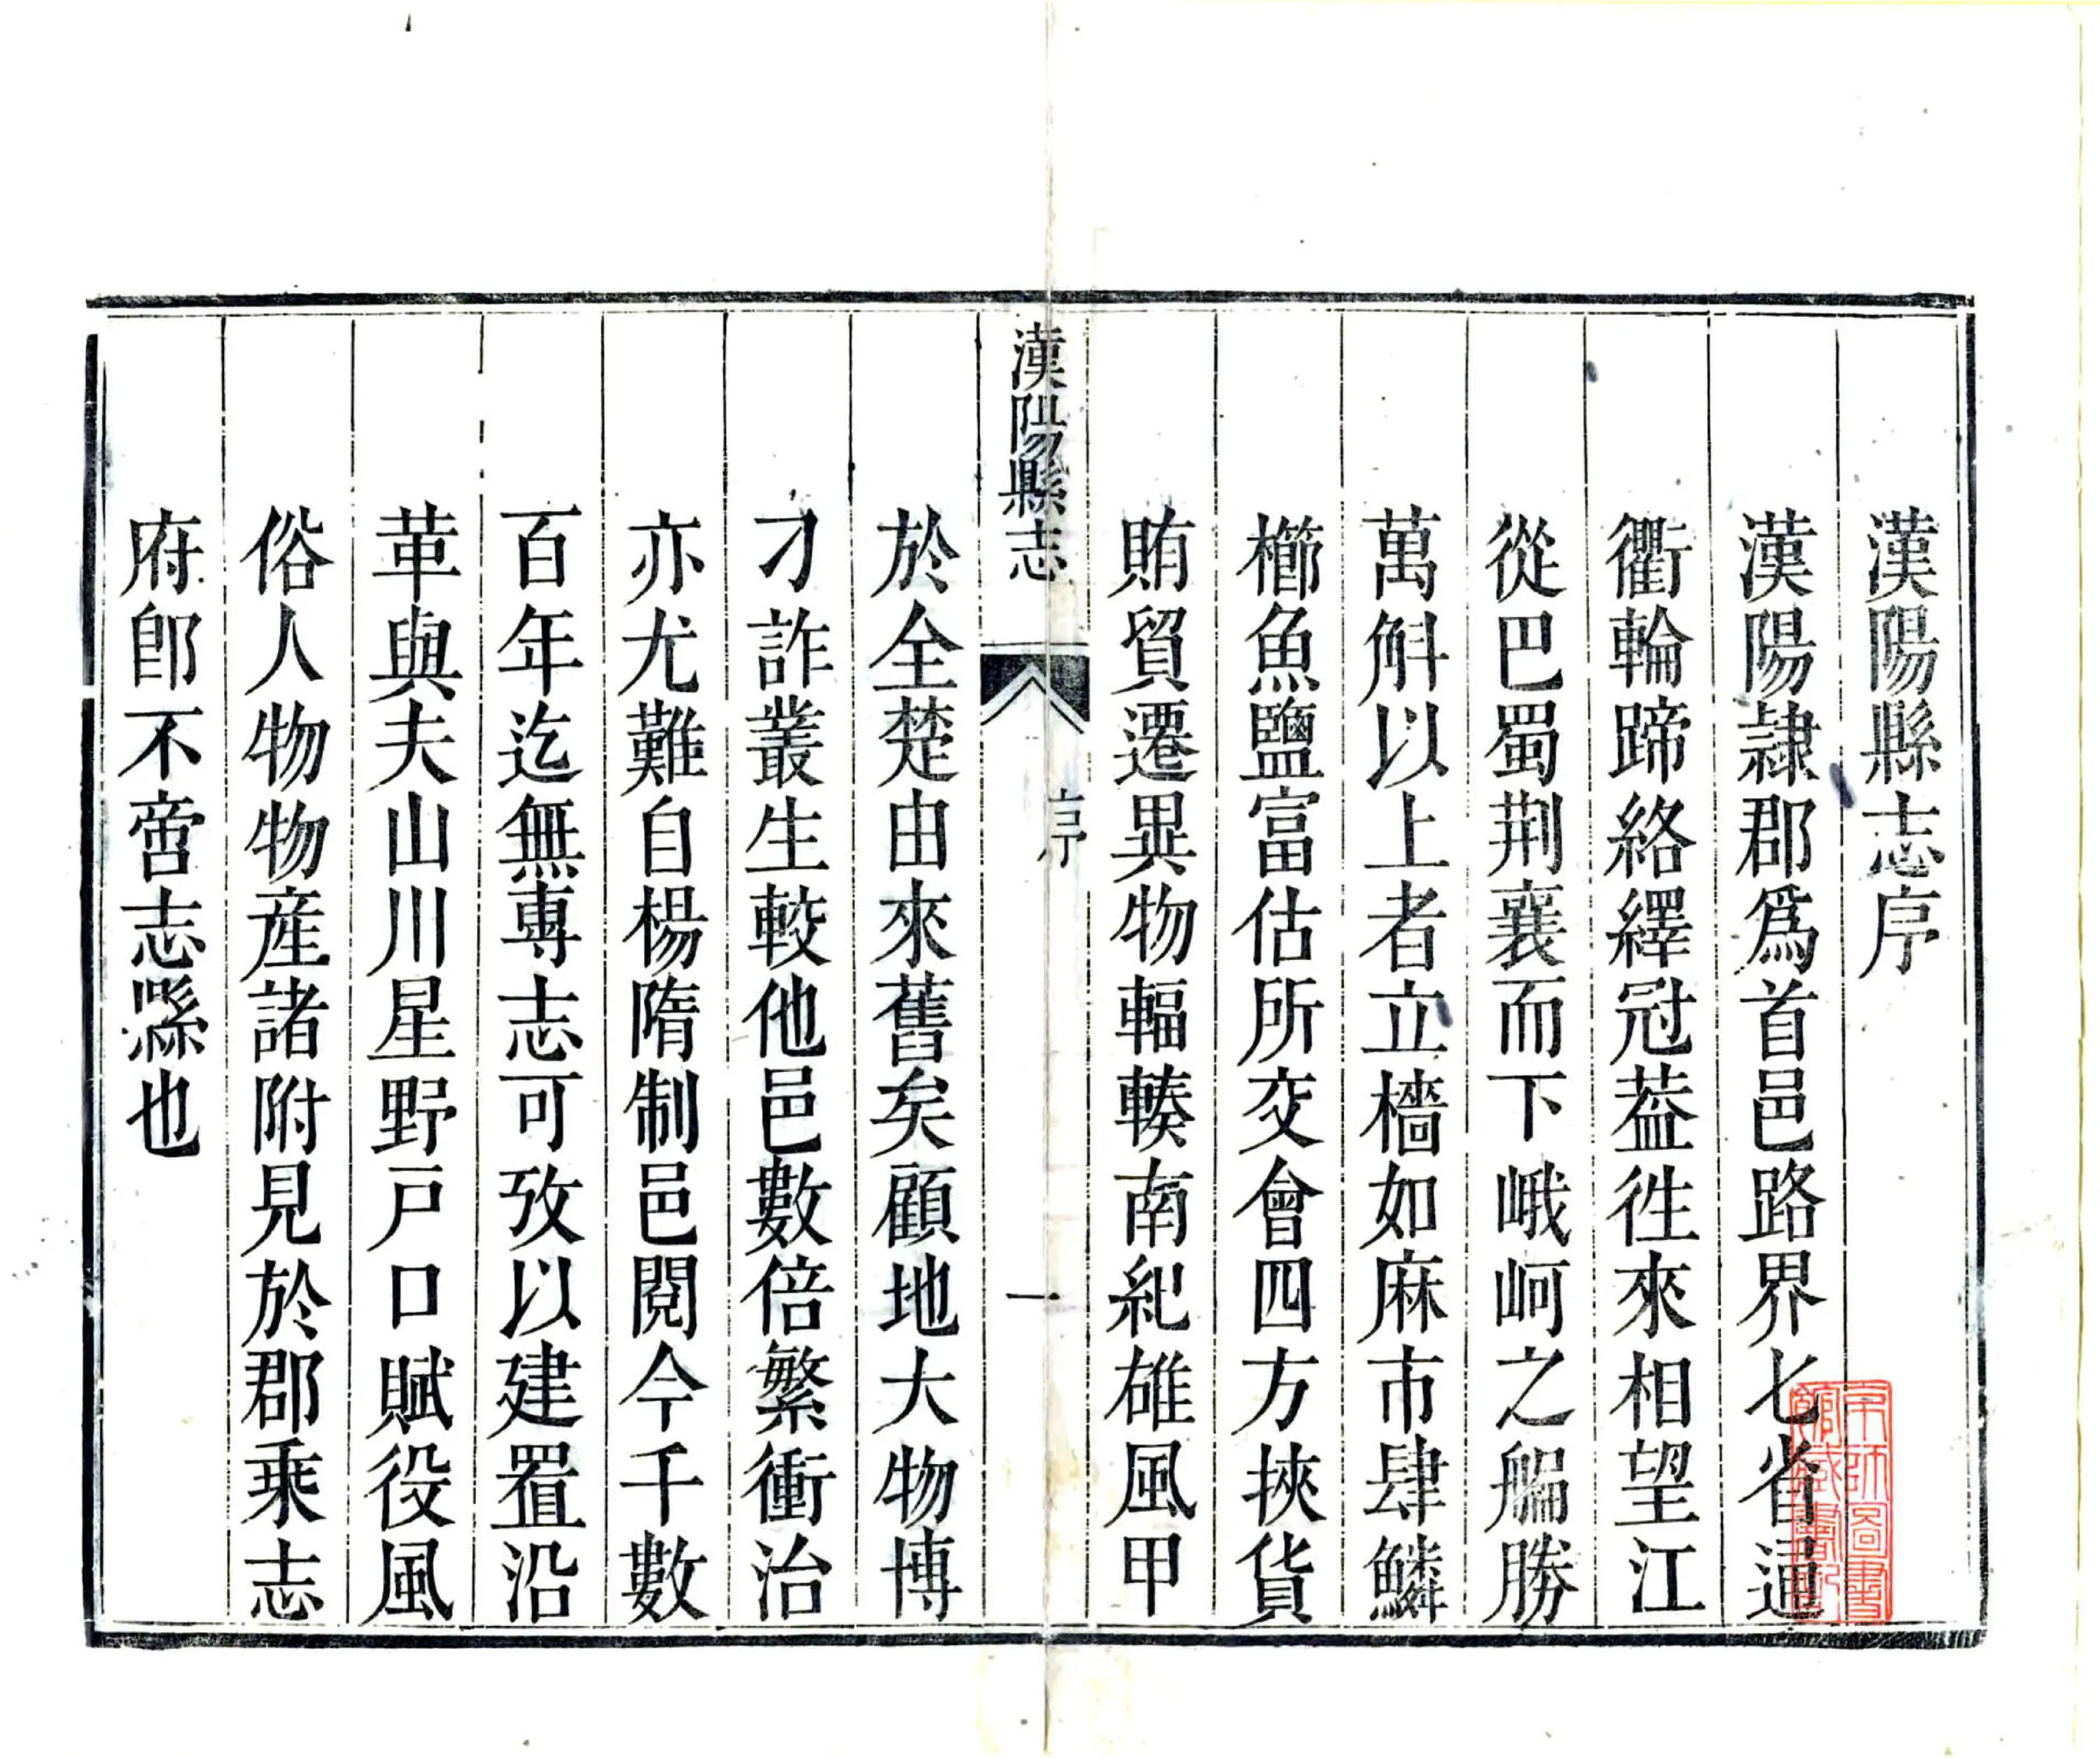 漢陽縣志序
漢陽隷郡爲首邑路界七省通
衢輪蹄絡繹冠葢徃來相望江
從巴蜀荆襄而下峨岢之艑勝
萬斛以上者立檣如麻市肆鱗
櫛魚鹽富估所交會四方挾貨
賄貿遷異物輻輳南紀雄風甲
漢陽縣志
序
一
於全楚由來舊矣顧地大物博
刁詐叢生較他邑數倍繁衝治
亦尤難自楊隋制邑閱今千數
百年迄無專志可攷以建置沿
革與夫山川星野戸口賦役風
俗人物物産諸附見於郡乘志
府卽不啻志縣也
京師圖書
館藏書記